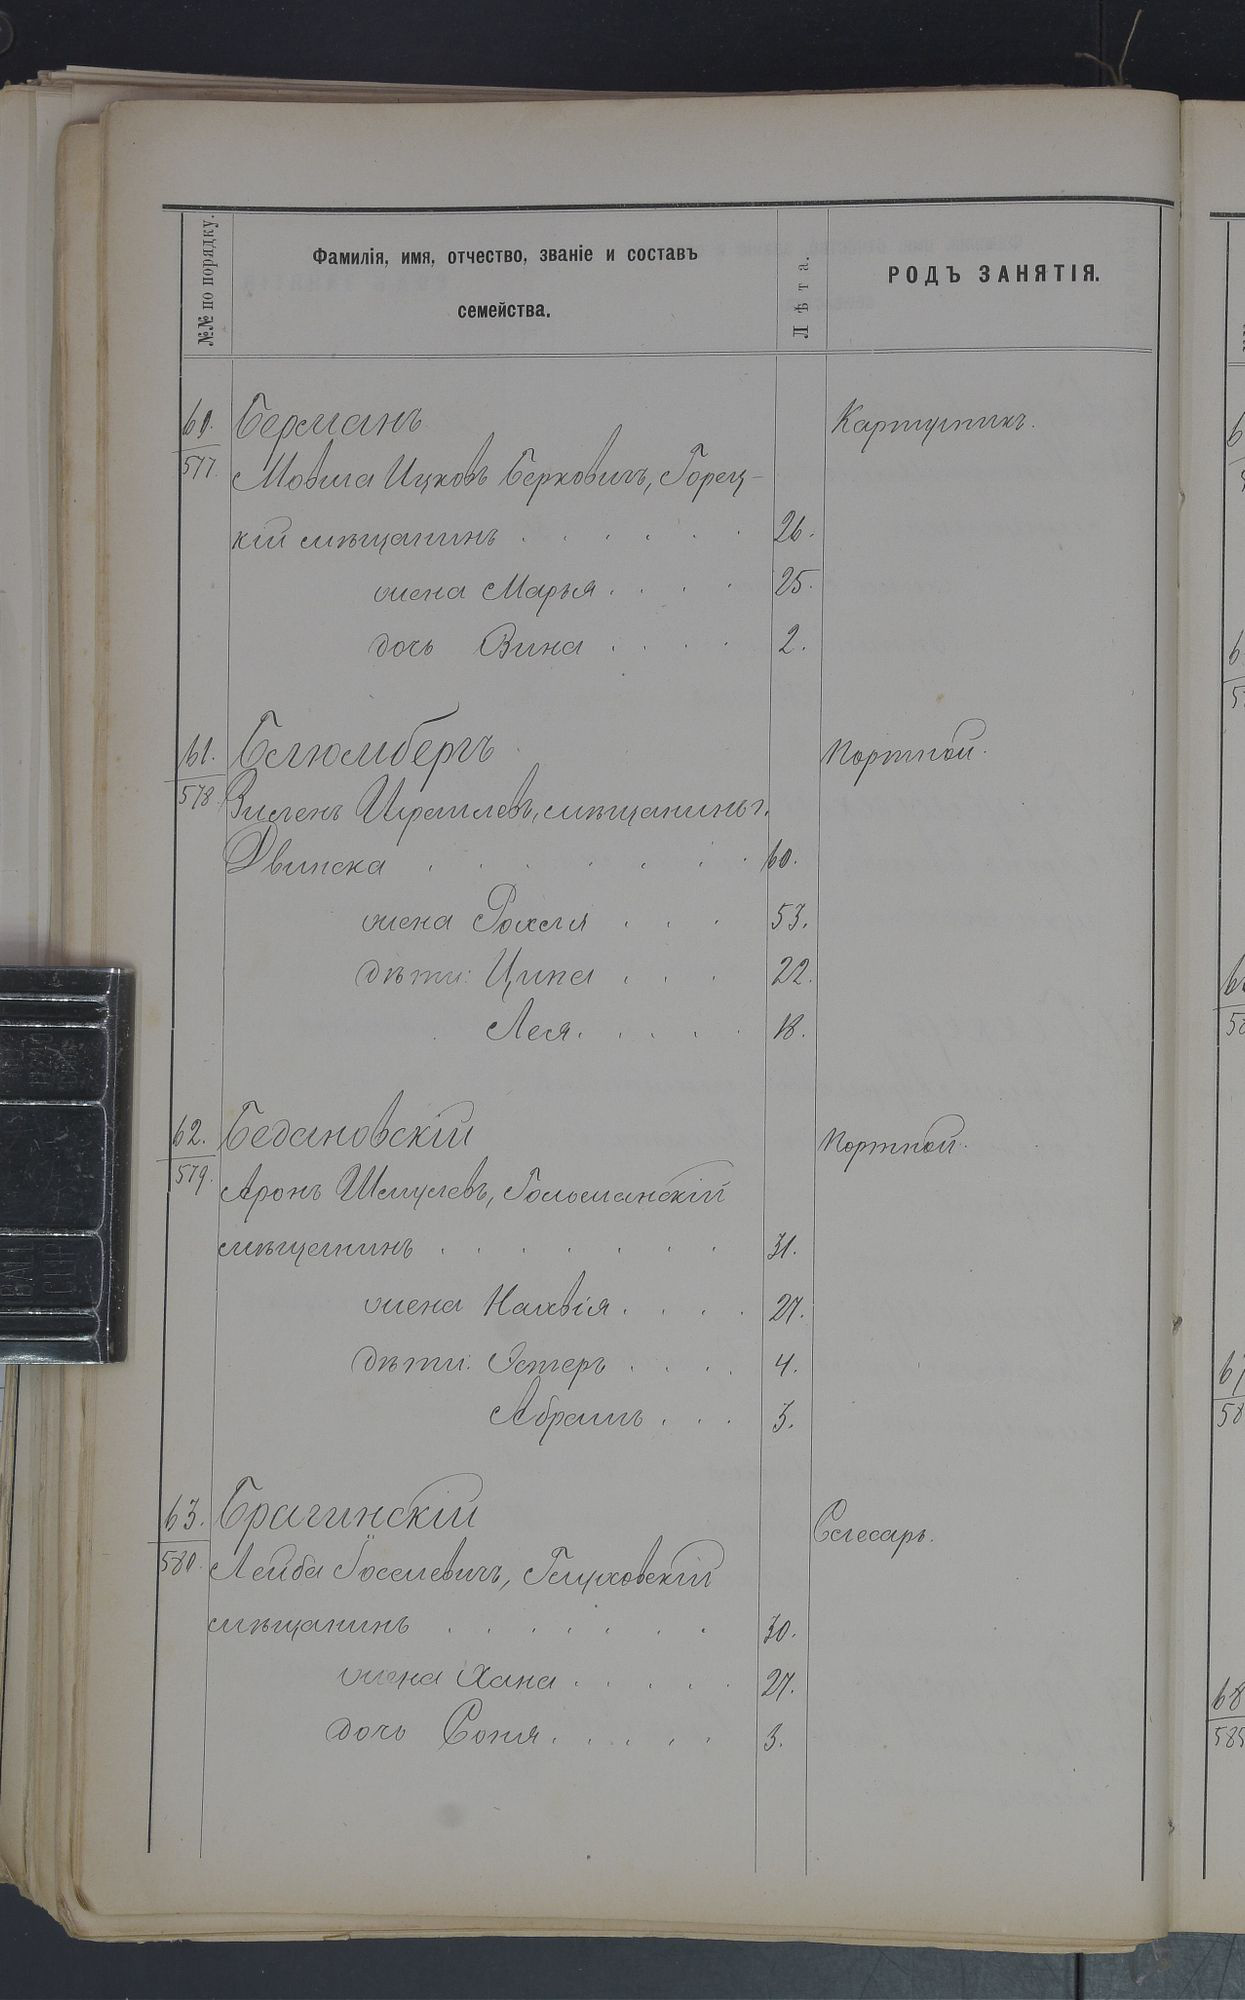 №№ по порядку.
Фамилія, имя, отчество, званіе и составъ
семейства.
Лѣта.
РОДЪ ЗАНЯТІЯ.
60. Берманъ Картузникъ.
577. Мовша Ицковъ Берковичъ, Горец-
кій мѣщанинъ . . . . . . 26.
жена Марья . . . . 25.
дочь Зина . . . . 2.
61. Блюмбергъ Портной.
578. Зименъ Израилевъ, мѣщанинъ г.
Двинска . . . . . . . 60.
жена Рохля . . . 53.
дѣти: Ципа . . . 22.
Лея . . . . 18.
62. Богдановскій Портной.
579. Аронъ Шмулевъ, Гольшанскій
мѣщанинъ . . . . . . . 31.
жена Малвія . . . . 27.
дѣти: Эстеръ . . . . 4.
Абрамъ . . . 3.
63. Брагинскій Слесарь.
580. Лейба Іоселевичъ, Глуховскій
мѣщанинъ . . . . . . . 30.
жена Хана . . . . . 27.
дочь Соня . . . . . 3.